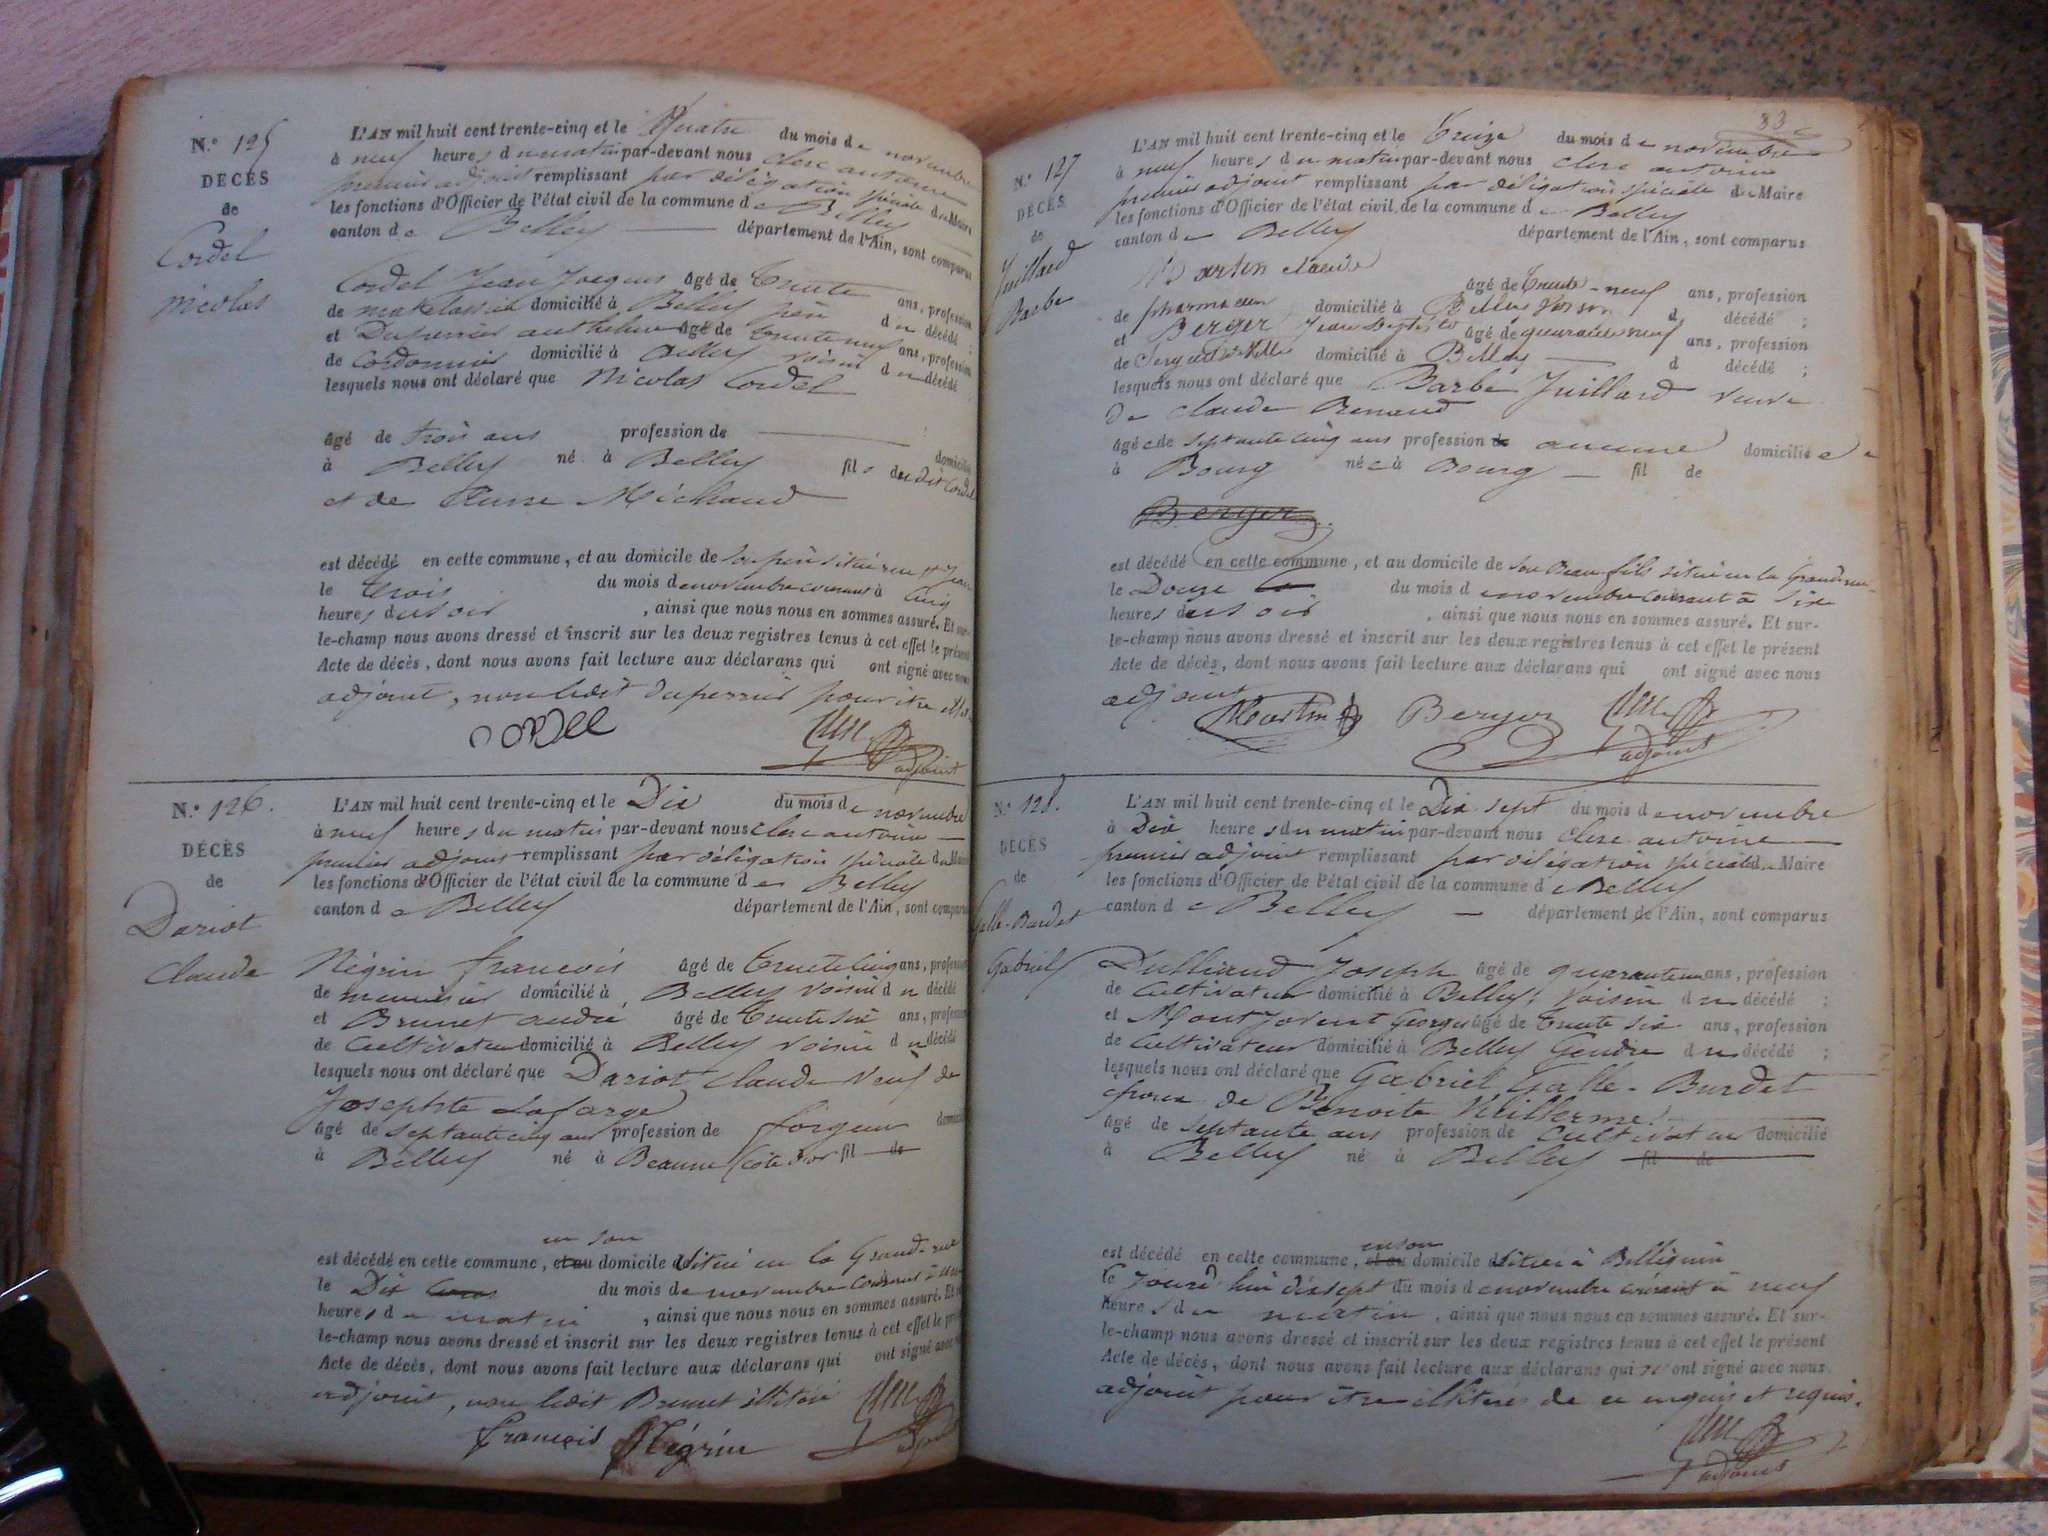 N.º 125
DÉCÈS
de
Cordel
Nicolas
L'AN mil huit cent trente-cinq et le Quatre du mois de novembre
à neuf heures du matin par-devant nous clerc antoine
premier adjoint remplissant par délégation spéciale du Maire
les fonctions d'Officier de l'état civil de la commune de Belley
canton de Belley département de l'Ain, sont comparus
Cordel Jean Jacques âgé de Trente ans, profession
de domicilié à Belley père du décédé ;
et Duperrier anthelme âgé de trente neuf ans, profession
de Cordonnier domicilié à Belley voisin du décédé
lesquels nous ont déclaré que Nicolas Cordel
âgé de trois ans profession de domicilié
à Belley né à Belley fils dudit Cordel
et de Pierre Michaud
est décédé en cette commune, et au domicile de son père situé rue St Jean
le trois du mois de novembre courant à cinq
heures du soir , ainsi que nous nous en sommes assuré. Et sur-
le-champ nous avons dressé et inscrit sur les deux registres tenus à cet effet le présent
Acte de décès, dont nous avons fait lecture aux déclarans qui ont signé avec nous
adjoint, non ledit Duperrier pour être
cordel Clerc adjoint
N.º 126.
DÉCÈS
de
Dariot
Claude
L'AN mil huit cent trente-cinq et le Dix du mois de novembre
à neuf heures du matin par-devant nous clerc antoine
premier adjoint remplissant par délégation spéciale du Maire
les fonctions d'Officier de l'état civil de la commune de Belley
canton de Belley département de l'Ain, sont comparus
Négrin françois âgé de trente cinq ans, profession
de menuisier domicilié à Belley voisin du décédé
et Brunet andré âgé de trente six ans, profession
de Cultivateur domicilié à Belley voisin du décédé
lesquels nous ont déclaré que Dariot Claude Veuf de
Josephte Lafarge
âgé de septante cinq ans profession de forgeur domicilié
à Belley né à Beaune Côte d'or fil de
en son
est décédé en cette commune, et au domicile situé en la Grande rue
le Dix du mois de novembre courant à une
heures du matin , ainsi que nous nous en sommes assuré. Et sur-
le-champ nous avons dressé et inscrit sur les deux registres tenus à cet effet le présent
Acte de décès, dont nous avons fait lecture aux déclarans qui ont signé avec nous
adjoint, non ledit Brunet illitéré Clerc
françois Négrin adjoint
83
N.º 127
DÉCÈS
de
Juillard
Barbe
L'AN mil huit cent trente-cinq et le Treize du mois de novembre
à neuf heures du matin par-devant nous clerc antoine
premier adjoint remplissant par délégation spéciale du Maire
les fonctions d'Officier de l'état civil de la commune de Belley
canton de Belley département de l'Ain, sont comparus
Martin claude âgé de Trente-neuf ans, profession
de pharmacien domicilié à Belley voisin d décédé ;
et Berger Jean Baptiste âgé de quarante neuf ans, profession
de Sergent de Ville domicilié à Belley d décédé ;
lesquels nous ont déclaré que Barbe Juillard veuve
de claude Renaud
âgée de septante cinq ans profession de aucune domiciliée
à Bourg née à Bourg fil de
Berger
est décédé en cette commune, et au domicile de son beau fils situé en la Grande rue
le Douze du mois de novembre courant à six
heures du soir , ainsi que nous nous en sommes assuré. Et sur-
le-champ nous avons dressé et inscrit sur les deux registres tenus à cet effet le présent
Acte de décès, dont nous avons fait lecture aux déclarans qui ont signé avec nous
adjoint
Martin Berger Clerc
adjoint
N.º 128.
DÉCÈS
de
Galle-Burdet
Gabriel
L'AN mil huit cent trente-cinq et le Dix sept du mois de novembre
à Dix heures du matin par-devant nous clerc antoine
premier adjoint remplissant par délégation spéciale du Maire
les fonctions d'Officier de l'état civil de la commune de Belley
canton de Belley département de l'Ain, sont comparus
Dulliand Joseph âgé de quarante un ans, profession
de Cultivateur domicilié à Belley, voisin du décédé ;
et Montjovent Georges âgé de trente six ans, profession
de Cultivateur domicilié à Belley Gendre du décédé ;
lesquels nous ont déclaré que Gabriel Galle-Burdet
époux de Benoite Vuillerme
âgé de septante ans profession de cultivateur domicilié
à Belley né à Belley fil de
en son
est décédé en cette commune, et au domicile situé à Billignin
le jourd'hui dix sept du mois de novembre courant à neuf
heures du matin , ainsi que nous nous en sommes assuré. Et sur-
le-champ nous avons dressé et inscrit sur les deux registres tenus à cet effet le présent
Acte de décès, dont nous avons fait lecture aux déclarans qui n'ont signé avec nous
adjoint pour être illitérés de ce enquis et requis.
Clerc
adjoint